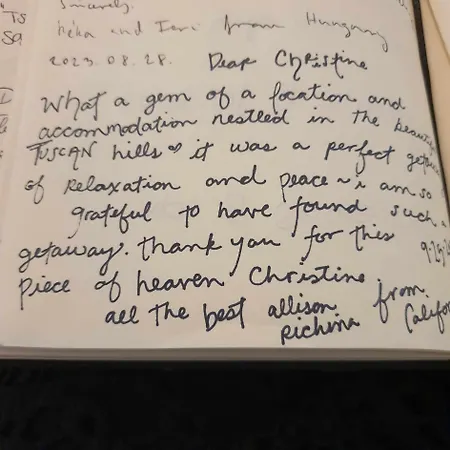 Sincerely,
Réka and Teri from Hungary
2023. 08. 28.
Dear Christine
What a gem of a location and
accommodation nestled in the beautiful
TUSCAN hills ♡ it was a perfect
of relaxation and peace ~ i am so
grateful to have found such a
getaway. thank you for this
piece of heaven Christine
9.25
all the best allison from
Richina Califor